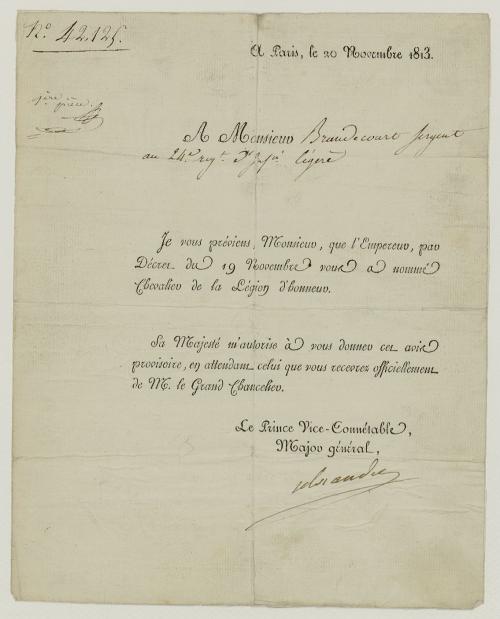 N.o 42.125.
A Paris, le 20 Novembre 1813.
1ère pièce.
A Monsieur Brandecourt Sergent
au 24.e reg.t d'Inf.ie légère
Je vous préviens, Monsieur, que l'Empereur, par
Décret du 19 Novembre vous a nommé
Chevalier de la Légion d'honneur.
Sa Majesté m'autorise à vous donner cet avis
provisoire, en attendant celui que vous recevrez officiellement
de M. le Grand Chancelier.
Le Prince Vice-Connétable,
Major général,
Alexandre